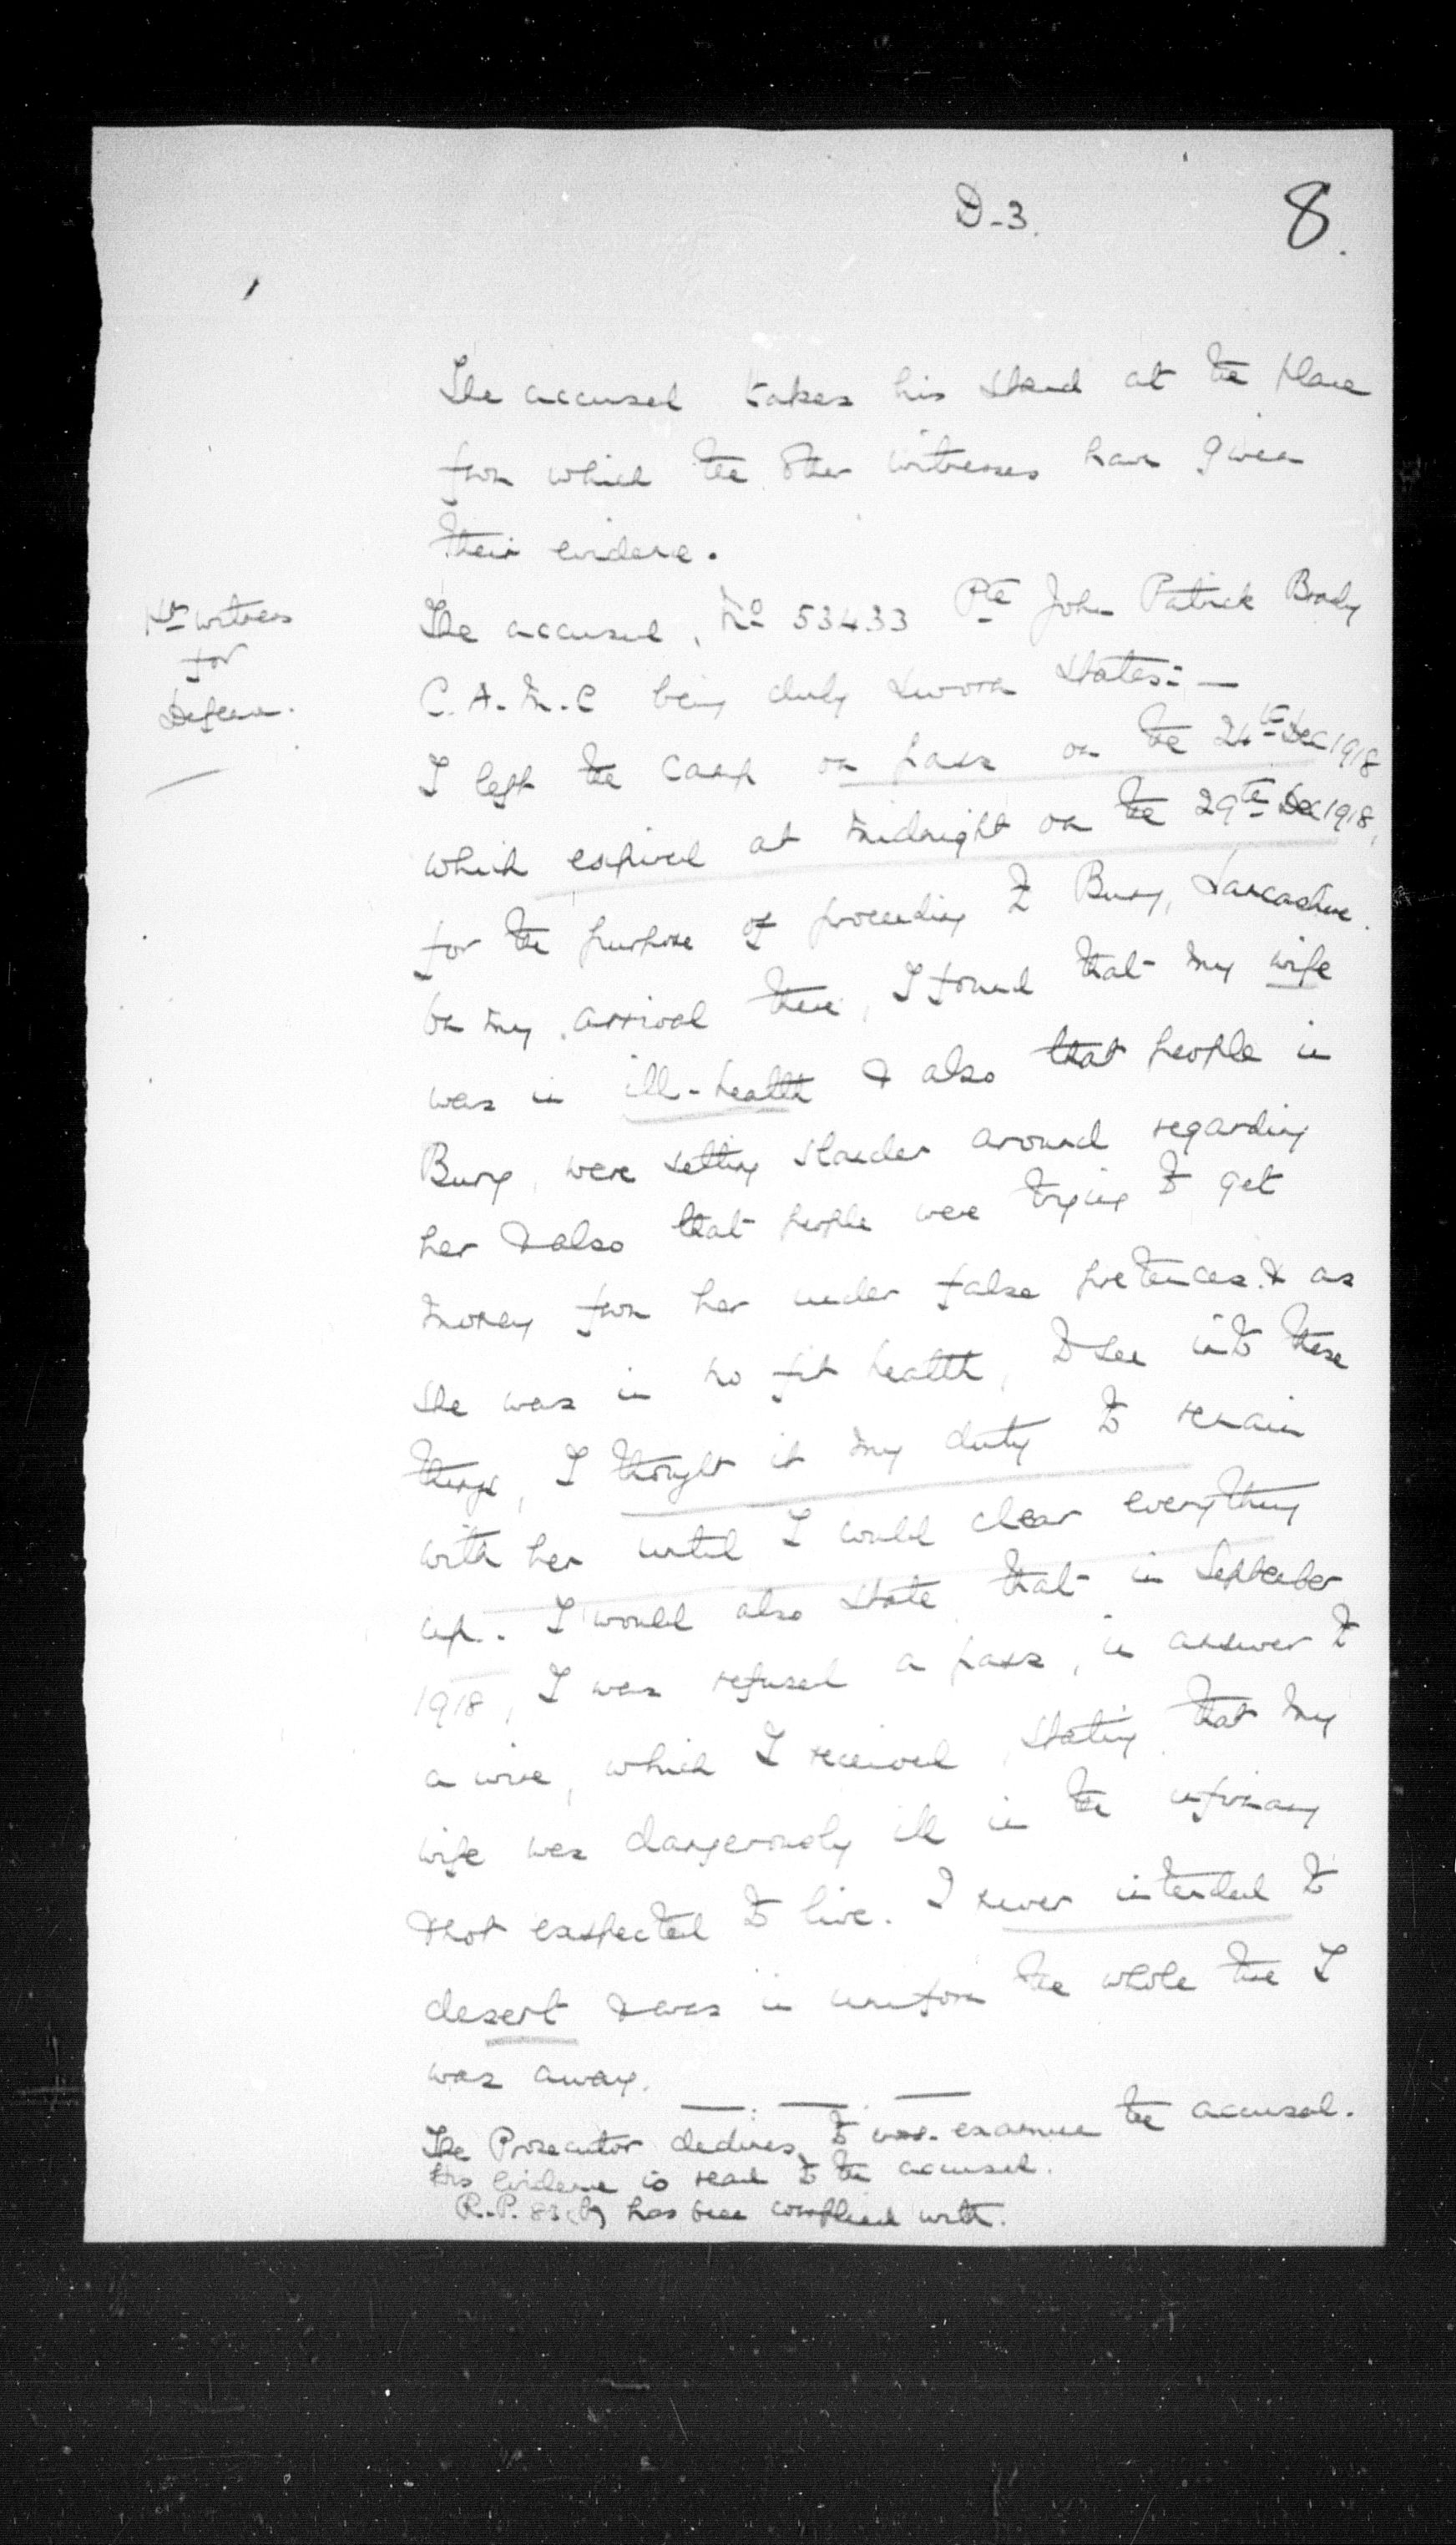 D-3.
8.
The accused takes his stand at the place
from which the other witnesses have given
their evidence.
1st witness
for
Defence.
The accused, No 53433 Pte John Patrick Brody
C.A.M.C being duly sworn states:—
I left the Camp on pass on the 24th Dec 1918
which expired at midnight on the 29th Dec 1918,
for the purpose of proceeding to Bury, Lancashire.
On my arrival there, I found that my wife
was in ill-health & also that people in
Bury, were setting slander around regarding
her & also that people were trying to get
money from her under false pretences. & as
she was in no fit health, to see into these
things, I thought it my duty to remain
with her until I could clear everything
up. I would also state that in September
1918, I was refused a pass, in answer to
a wire, which I received, stating that my
wife was dangerously ill in the infirmary
& not expected to live. I never intended to
desert & was in uniform the whole time I
was away.
The Prosecutor declines to cross-examine the accused.
His evidence is read to the accused.
R.P. 83(b) has been complied with.